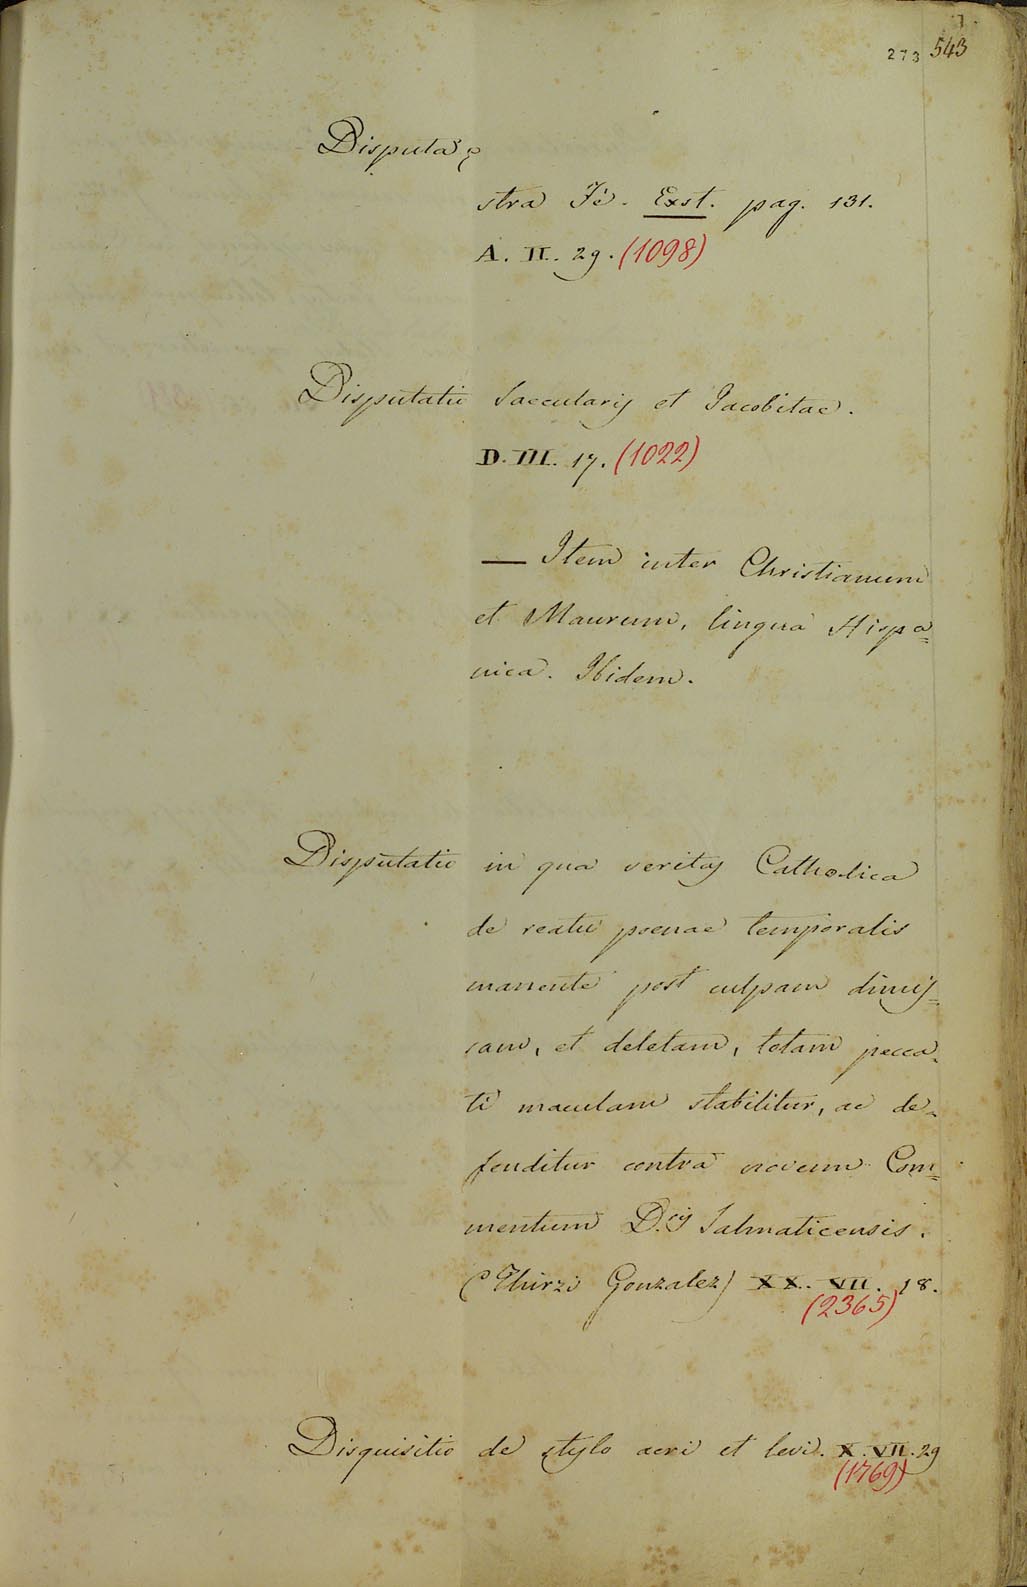 273 543
Disputaz
stra Fé. Exst. pag. 131.
A. II. 29. (1098)
Disputatio saecularis et Jacobitae.
D. III. 17. (1022)
— Item inter Christianum
et Maurum, lingua Hispa=
nica. Ibidem.
Disputatio in qua veritas Catholica
de reatu poenae temporalis
manente post culpam dimis=
sam, et deletam, totam pecca=
ti maculam stabilitur, ac de=
fenditur contra novum Com=
mentum D.cis Salmaticensis.
(Thirzi Gonzalez) XX. VII. 18.
(2365)
Disquisitio de stylo acri et levi. X. VII. 29
(1769)